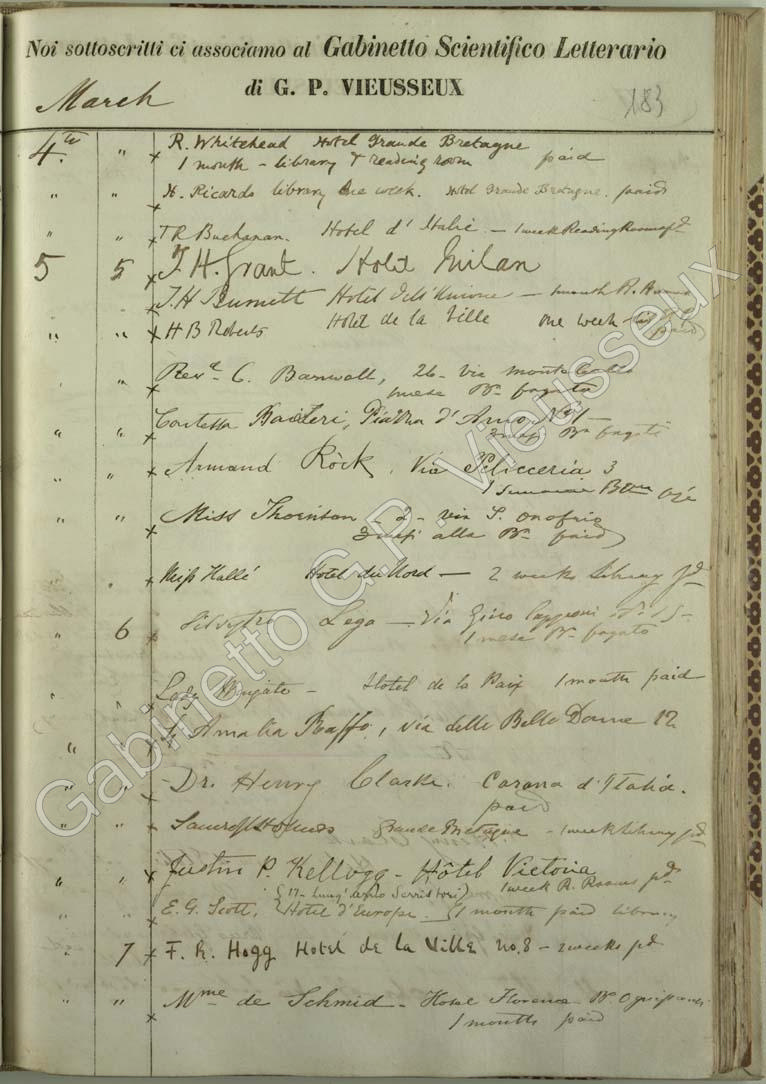 Noi sottoscritti ci associamo al Gabinetto Scientifico Letterario
di G. P. VIEUSSEUX
March
183
4th " R. Whitehead Hotel Grande Bretagne
1 month - library & reading room paid
" " H. Ricards library one week. Hotel Grande Bretagne. paid
" " T R Buchanan. Hotel d'Italie - 1 week Reading Room pd
5 5 J. H. Grant. Hotel Milan
J. H Burnett Hotel dell'Unione - 1 month R. Room
" " H B Roberts Hotel de la Ville one week paid
" " Revd C. Barwall, 26 - via
mese pagato
" " Contessa Piazza d'Arno No 1
" " Armand Röck. Via Pelicceria 3
1 Semaine
" " Miss Thornton 2 - via S. Onofrio
3 mesi alla paid
" Miss Hallé Hotel du Nord - 2 weeks library pd
" 6 Silvestro Lega - Via Gino Capponi
1 mese pagato
" " Lady Hotel de la Paix 1 month paid
" " Amalia Raffo, via delle Belle Donne 12
" " Dr. Henry Clarke. Corona d'Italia.
paid
" " Grande Bretagne - 1 week library pd
" " Justin P. Kellogg - Hôtel Victoria
1 week R. Rooms pd
(17 - Lung'arno Serristori)
" " E. G. Scott, Hotel d'Europe. 1 month paid library
" 7 F. R. Hogg Hotel de la Ville no. 8 - 2 weeks pd
" " Mme de Schmid - Hotel Florence
1 months paid
Gabinetto G.P. Vieusseux